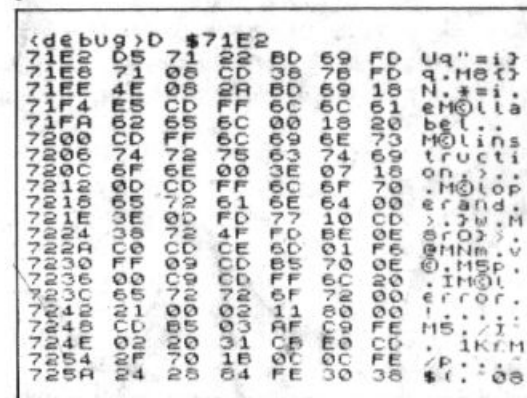 <debug>D $71E2
71E2 D5 71 22 BD 69 FD Uq"=i}
71E8 71 08 CD 38 7B FD q.M8{}
71EE 4E 08 2A BD 69 18 N.*=i.
71F4 E5 CD FF 6C 6C 61 eM©lla
71FA 62 65 6C 00 18 20 bel..
7200 CD FF 6C 69 6E 73 M©lins
7206 74 72 75 63 74 69 tructi
720C 6F 6E 00 3E 07 18 on.>..
7212 0D CD FF 6C 6F 70 .M©lop
7218 65 72 61 6E 64 00 erand.
721E 3E 0D FD 77 10 CD >.}w.M
7224 38 72 4F FD BE 0E 8rO}>.
722A C0 CD CE 6D 01 F6 @MNm.v
7230 FF 09 CD B5 70 0E ©.M5p.
7236 00 C9 CD FF 6C 20 .IM©l
723C 65 72 72 6F 72 00 error.
7242 21 00 02 11 80 00 !.....
7248 CD B5 03 AF C9 FE M5./I~
724E 02 20 31 CB E0 CD . 1K£M
7254 2F 70 1B 0C 0C FE /p...~
725A 24 28 84 FE 30 38 $(.~08